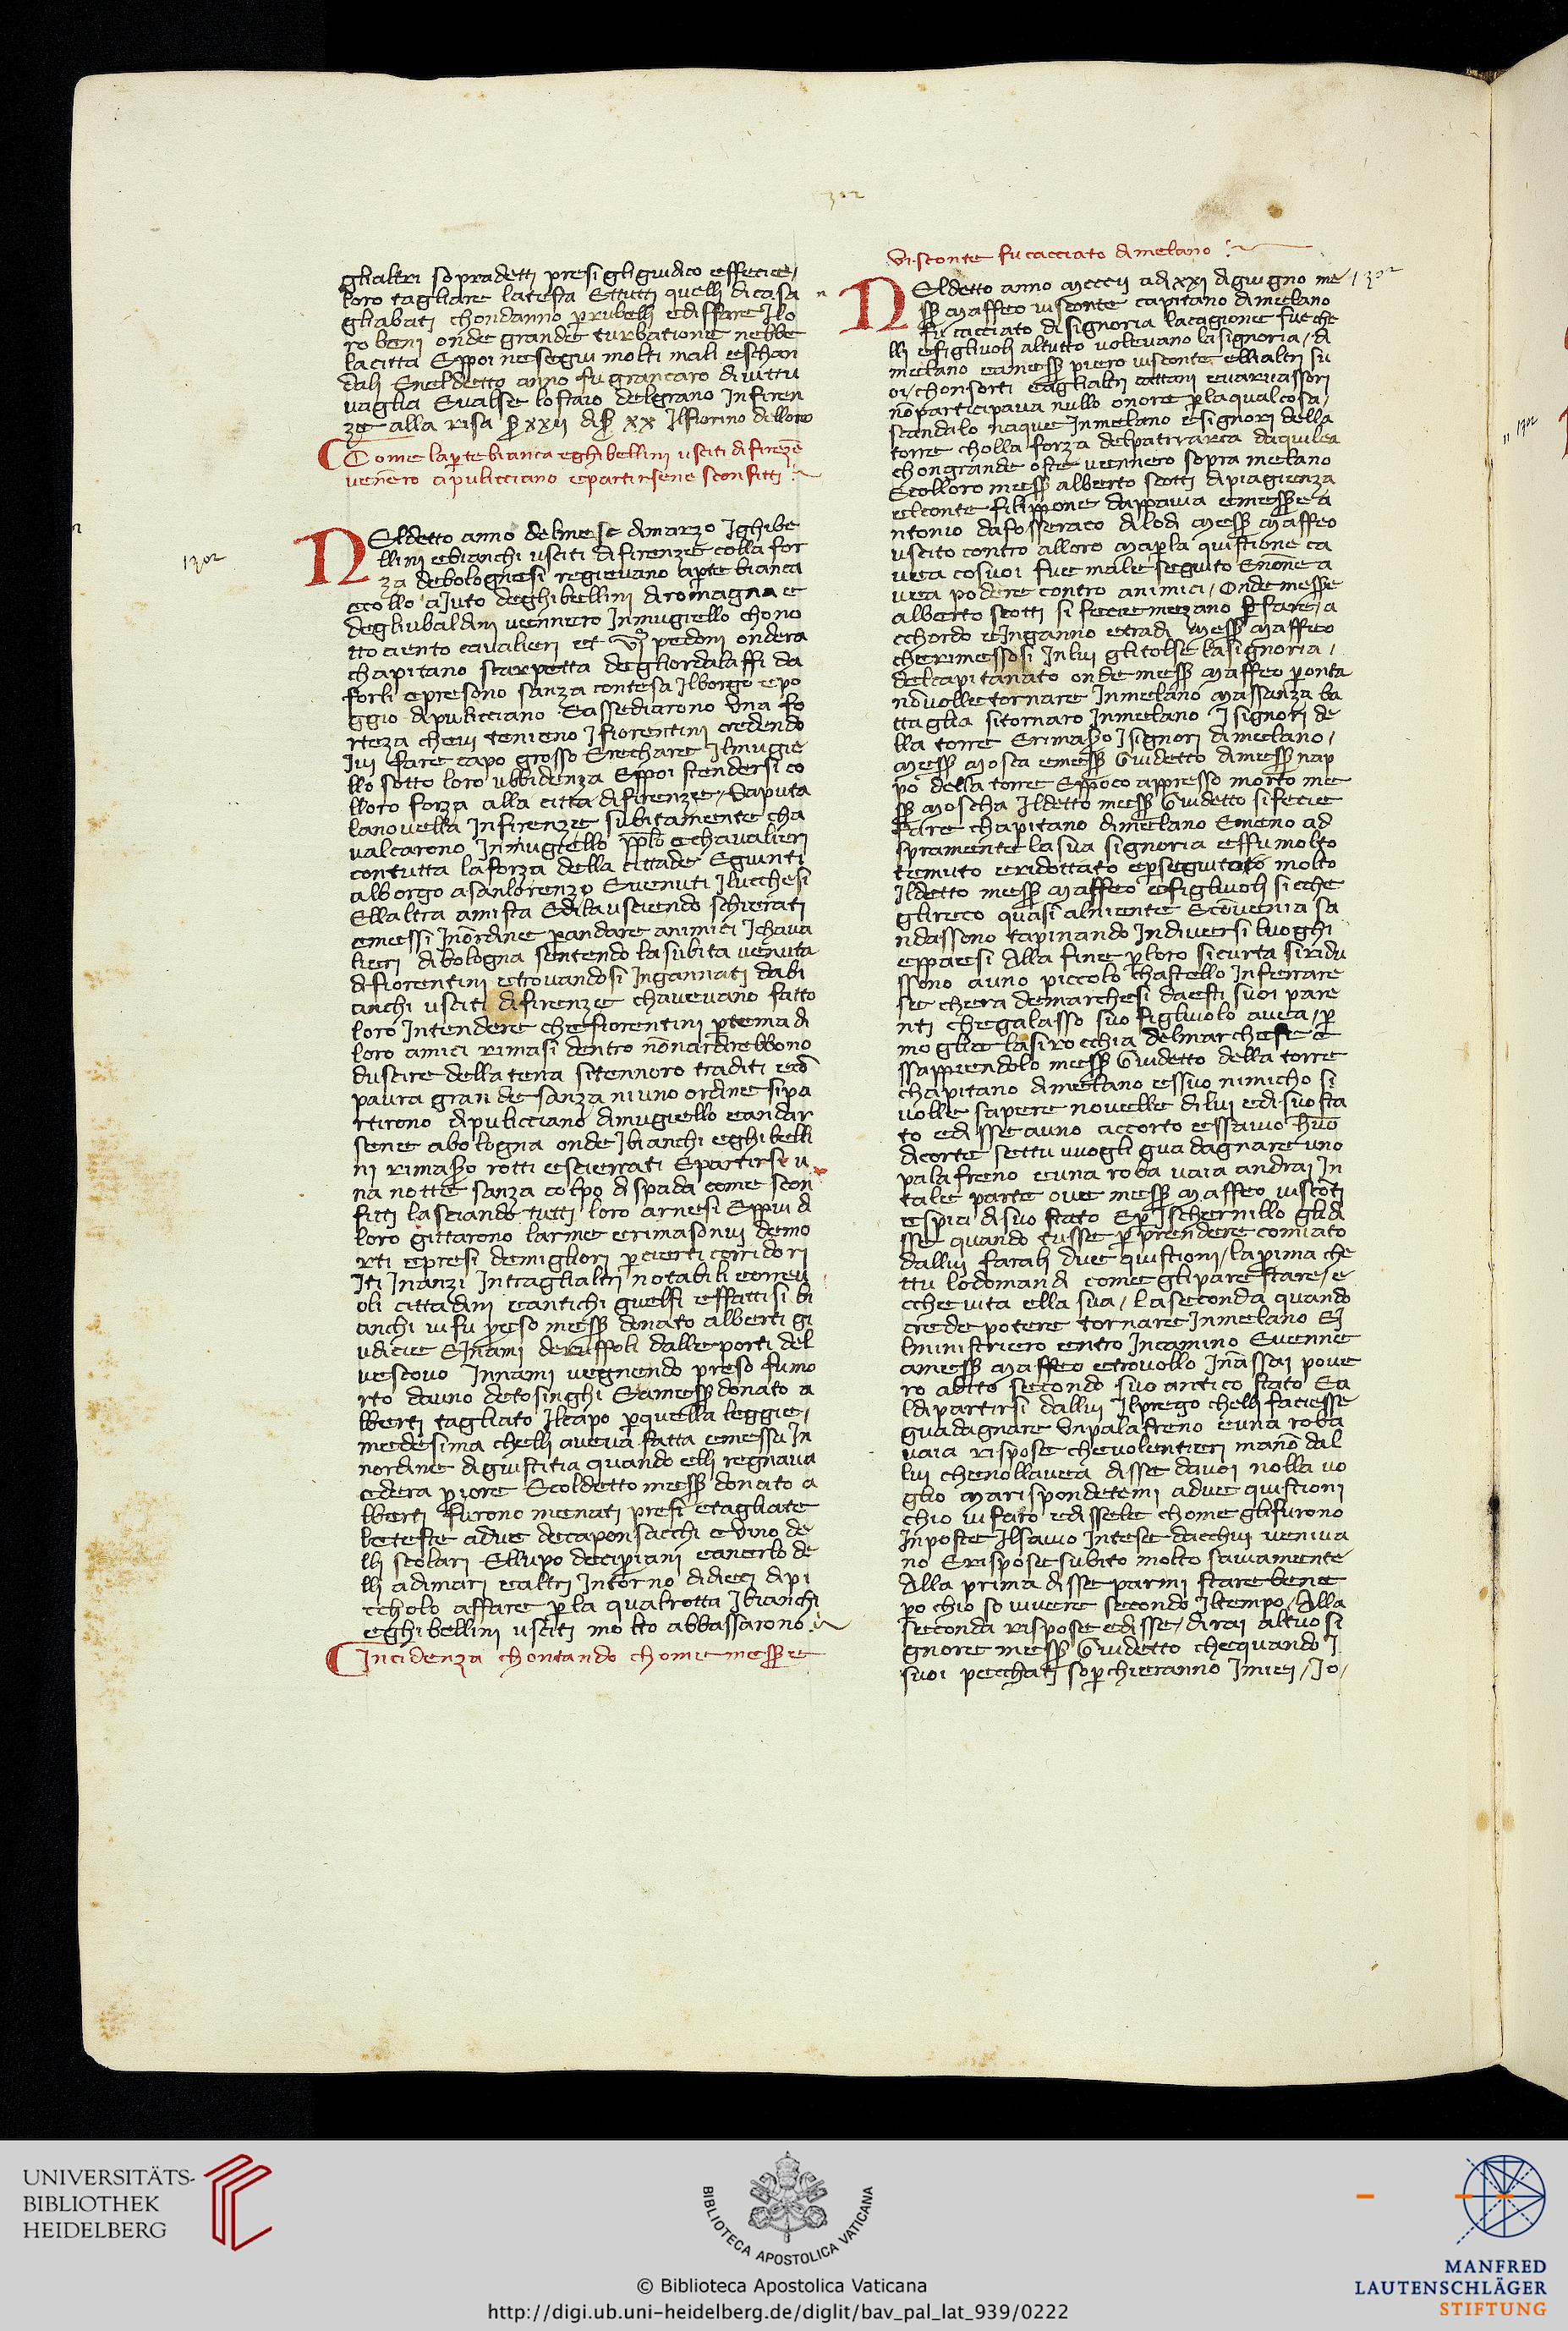 1302
gli altri sopradetti presi gli giudico effecie /
loro tagliare la testa Ettutti quelli di casa
gliabati chondanno per rubelli e disffare Ilo
ro beni onde grande turbatione nebbe
la citta Eppoi ne segui molti mali eschan
dali Eneldetto anno fu gran caro di vittu
vaglia Evalse lo staio del grano In firen
ze alla risa ꝑ xxij di ꝑ xx Il fiorino delloro
Come la ꝑte bianca eghibellini usciti di firenze
venero a pulicciano epartirsene sconfitti
1302
Neldetto anno del mese di marzo Ighibe
llini ebianchi usciti di firenze colla for
za debolognesi regievano aꝑte bianca
ecollo aJuto deghibellini di romagna e
degliubaldini vennero In mugiello chono
tto ciento cavalieri et vj pedoni ondera
chapitano scarpetta degliordalaffi da
forli epresono sanza contesa Il borgo e po
ggio di pulicciano Eassediarono Una fo
rteza chevi tenieno I fiorentini credendo
Ivi fare capo grosso Erechare Il mugie
llo sotto loro ubbidenza Eppoi stendersi co
lloro forza alla citta di firenze / Saputa
la novella In firenze subitamente cha
valcarono In mugiello pplo e chavalieri
con tutta la forza della cittade Egiunti
al borgo a san lorenzo Evenuti I lucchesi
Ell altra amista Edila usciendo schierati
emessi In ordine ꝑ andare animici I chava
lieri di bologna sentendo la subita venuta
di fiorentini etrovandosi Ingannati dabi
anchi usciti di firenze chavevano fatto
loro Intendere che fiorentini ꝑ tema di
loro amici rimasi dentro non ardirebbono
duscire della terra si tennoro traditi eco
paura grande sanza niuno ordine si pa
rtirono di pulicciano di mugiello eandar
sene a bologna onde I bianchi eghibelli
ni rimaso rotti escierrati Epartirsi u
na notte sanza colpo di spada come scon
fitti lasciando tutti loro arnesi Eppiu di
loro gittarono larme erimasonvi demo
rti epresi demigliori ꝑ cierti corridori
Iti Inanzi Intra gli altri notabili eorrev
oli cittadini eantichi guelfi effattisi bi
anchi vi fu preso messer donato alberti gi
udicie E Inami de ruffoli dalle porti del
vescovo Innami vegnendo preso fu mo
rto da uno detosinghi Eamesser donato a
lberti tagliato Il capo ꝑ quella leggie /
medesima chelli aveva fatta emessa In
nordine di giustitia quando elli regnava
edera priore Ecoldetto messer donato a
lberti furono menati presi etagliate
le teste a due decaponsacchi e Uno de
lli scolari Ellupo decipriani eanerlo de
lli adimari ealtri Intorno di dieci di pi
ccholo affare ꝑ la qual rotta I bianchi
eghibellini usciti molto abbassarono
Incidenza chontando chome messere
Visconte fu cacciato di melano
Neldetto anno mcccij adi xxj di giugno me 1302
sser maffeo visconte capitano di melano
fu cacciato di signoria la cagione fue che
lli efigliuoli al tutto volevano la signoria / di
melano eamesser piero visconte elli altri su
oi / chonsorti eagli altri cattani evarvassori
no participava nullo onore ꝑ la qual cosa /
scandalo naque In melano esignori della
torre cholla forza del patriarca daquilea
chon grande oste vennero sopra melano
Ecolloro messer alberto scotti di piagienza
el conte filippone dappavia emesser a
ntonio da fosseraco di lodi messer maffeo
uscito contro alloro ma ꝑ la quistione ca
vea co suoi fue male seguito Enone a
vea podere contro animici / Onde messer
alberto scotti si fecie mezano ꝑ fare / a
cchordo e Inganno etradi messer maffeo
che rimessosi In lui gli tolse la signoria /
del capitanato onde messer maffeo ꝑ onta
no volle tornare In melano Ma ssanza ba
ttaglia si tornaro In melano I signori de
lla torre Erimaso I signori di melano /
messer mosca emesser Guidetto di messer nap
po della torre Eppoco appresso morto me
sser moscha Ildetto messer Guidetto si fecie
fare chapitano di melano Emeno ad
spramente la sua signoria effu molto
temuto eridottato epseguitato molto
Ildetto messer maffeo efigliuoli sicche
gli reco quasi al niente Ecovenia sa
ndassono tapinando In diversi luoghi
eppaesi Alla fine ꝑ loro sicurta si ridu
ssono a uno piccolo chastello In ferrare
se chera demarchesi da esti suoi pare
nti che galasso suo figliuolo avea / ꝑ
moglie la sirocchia del marchese e
ssappiendolo messer Guidetto della torre
chapitano di melano essuo nimicho si
volle sapere novelle di lui edi suo sta
to edisse a uno accorto essavio huo
di corte settu vuogli guadagnare uno
palafreno e una roba vaia andrai In
tale parte ove messer maffeo visconti
espia di suo stato Eꝑ Ischernillo gli di
sse quando tusse ꝑ prendere comiato
dallui farali due quistioni / la prima che
ttu lo domandi come gli pare stare / e
cche vita ella sua / la seconda quando
crede potere tornare In melano El
ministriero entro In camino Evenne
a messer maffeo etrovollo In assai pove
ro abito secondo suo antico stato Ea
l dipartirsi dallui Il prego chelli faciesse
guadagnare Un palafreno e una roba
vaia rispose che volentieri ma no dal
lui che nollavea disse da voi nolla vo
glio ma rispondetemi a due quistioni
chio vi faro edissele chome gli furono
Inposte Il savio Intese da cchui veniva
no Erispose subito molto saviamente
Alla prima disse parmi stare bene
po chio so vivere secondo Il tempo / Alla
seconda rispose edisse / dirai al tuo si
gnore messer Guidetto che quando I
suoi pecchati soperchieranno I miei / Io /
11 1302
UNIVERSITÄTS-
BIBLIOTHEK
HEIDELBERG
BIBLIOTECA APOSTOLICA VATICANA
© Biblioteca Apostolica Vaticana
http://digi.ub.uni-heidelberg.de/diglit/bav_pal_lat_939/0222
MANFRED
LAUTENSCHLÄGER
STIFTUNG